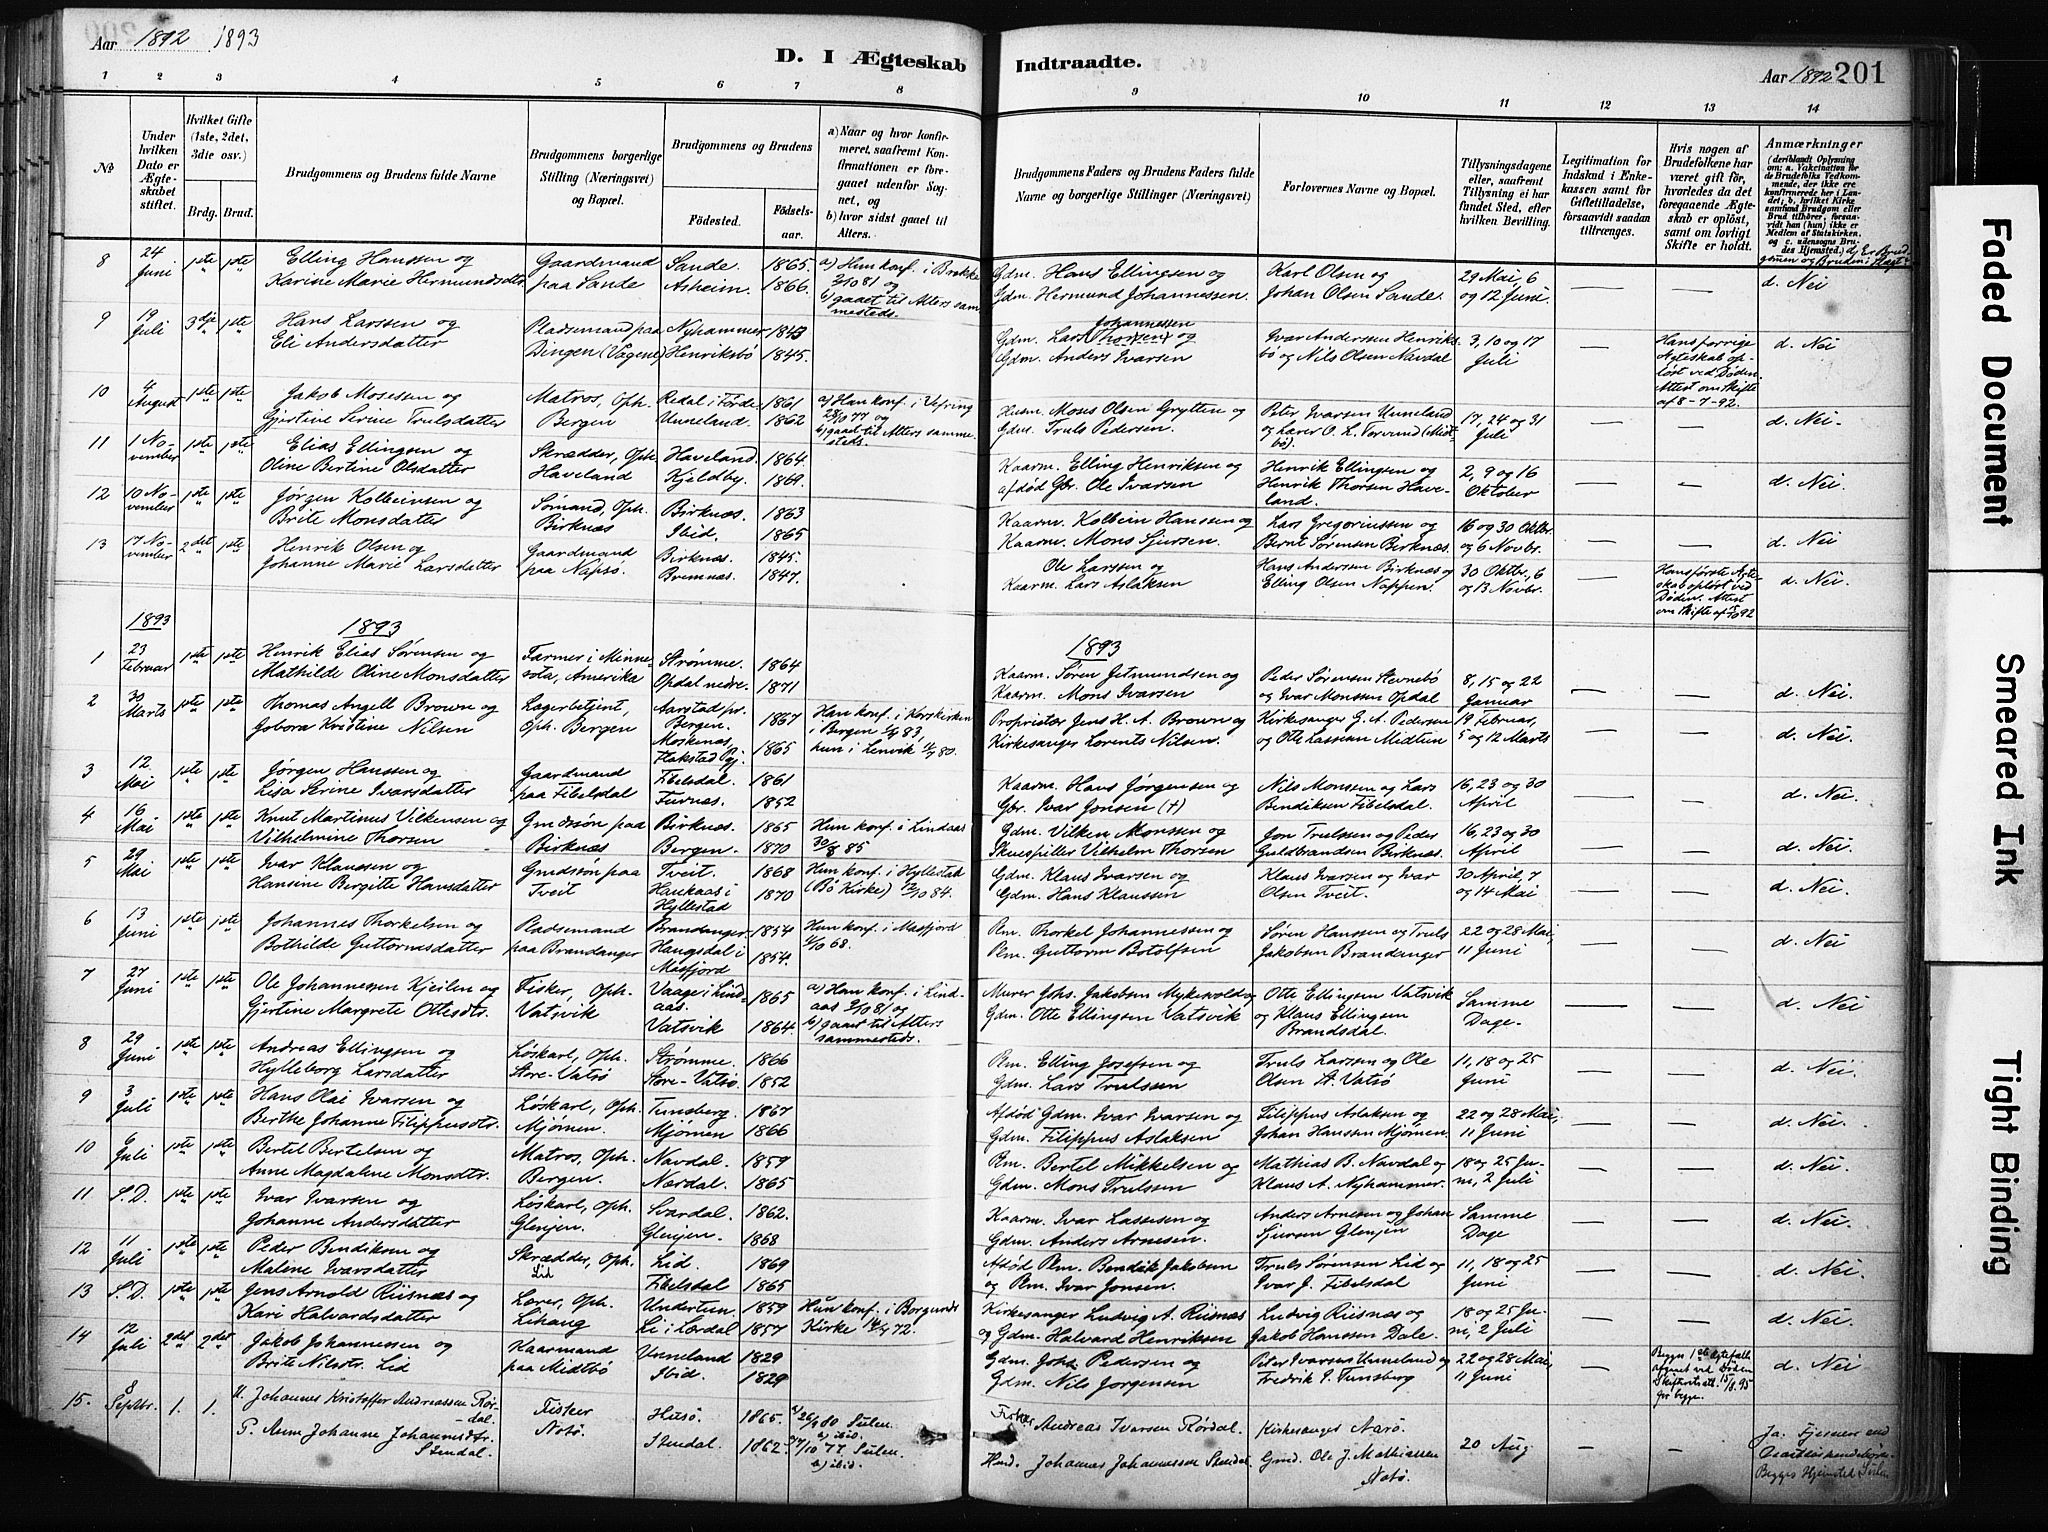 Aar 1892 1893
D. I Ægteskab Indtraadte.
Aar 1892 201
1 2 3 4 5 6 7 8 9 10 11 12 13 14
No
Under hvilken Dato er Ægteskabet stiftet.
Hvilket Gifte (1ste, 2det, 3die osv.)
Brdg. Brud.
Brudgommens og Brudens fulde Navne
Brudgommens borgerlige Stilling (Næringsvei) og Bopæl.
Brudgommens og Brudens
Födested. Födselsaar.
a) Naar og hvor konfirmeret, saafremt Konfirmationen er foregaaet udenfor Sognet, og b) hvor sidst gaaet til Alters.
Brudgommens Faders og Brudens Faders fulde Navne og borgerlige Stillinger (Næringsvei)
Forlovernes Navne og Bopæl.
Tillysningsdagene eller, saafremt Tillysning ei har fundet Sted, efter hvilken Bevilling.
Legitimation for Indskud i Enkekassen samt for Giftetilladelse, forsaavidt saadan tiltrænges.
Hvis nogen af Brudefolkene har været gift för, hvorledes da det foregaaende Ægteskab er oplöst, samt om lovligt Skifte er holdt.
Anmærkninger
(deriblandt Oplysning om: a. Vakcination for de Brudefolks Vedkommende, der ikke ere konfirmerede her i Landet; b. hvilket Kirkesamfund Brudgom eller Brud tilhörer, forsaavidt han (hun) ikke er Medlem af Statskirken, og c. udensogns Brudes Hjemsted.) d. Er Brudgmen og Bruden i Slægt?
8 24 Juni 1ste 1ste Elling Hanssen og Gaardmand Sande. 1865. a) Hun konf. i Brekke Gdm. Hans Ellingsen og Karl Olsen og 29 Mai, 6 — — d. Nei
Karine Marie Hermundsdtr. paa Sande Asheim. 1866. 2/10 81 og b) gaaet til Alters sammesteds. Gdm. Hermund Johannessen. Johan Olsen Sande. og 12 Juni.
9 19 Juli 3dje 1ste Hans Larssen og Pladsemand paa Nyhammer 1843 Gdm. Lars Johannessen og Ivar Anderssen Henriks- 3, 10 og 17 — Hans forrige Ægteskab op- d. Nei
Eli Andersdatter Dingen (Vågene) Henriksbö 1845. Gdm. Anders Ivarsen. bö og Nils Olsen Navdal Juli løst ved Døden. Attest om Skifte af 8-7-92.
10 4 August 1ste 1ste Jakob Mosessen og Matros, Oph. Redal i Førde 1861 a) Hun konf. i Vefring Husm. Moses Olsen Grytten og Peter Ivarsen Unneland 17, 24 og 31 — d. Nei.
Gjertine Serine Trulsdatter Bergen Unneland. 1862 28/9 77 og b) gaaet til Alters sammesteds. Gdm. Truls Pedersen. og Lærer O. L. Torvund (Midtbö). Juli
11 1 November 1ste 1ste Elias Ellingsen og Skrædder, Oph. Haveland. 1864. Kaarm. Elling Henriksen og Henrik Ellingsen og 2, 9 og 16 — — d. Nei.
Oline Bertine Olsdatter Haveland Kjeldby. 1869. afdöd Gbr. Ole Ivarsen. Henrik Thorsen Haveland. Oktober
12 10 November 1ste 1ste Jörgen Kolbeinsen og Sømand, Oph. Birknæs. 1863 Kaarm. Kolbein Hanssen og Lars Gregoriussen og 16 og 30 Oktbr. — — d. Nei
Brite Monsdatter Birknæs Ibid. 1865 Kaarm. Mons Sjursen. Bernt Sørensen Birknæs. og 6 Novbr.
13 17 November 2det 1ste Henrik Olsen og Gaardmand Birknæs. 1845. Ole Larssen og Hans Andersen Birknæs og 30 Oktbr, 6 — Hans første Ægte- d. Nei.
Johanne Marie Larsdatter paa Nåpsö. Bremnæs. 1847. Kaarm. Lars Aslaksen Elling Olsen Nappen. og 13 Novbr. skab opløst ved Døden. Attest om Skifte af 92
1893 1893 1893
1 23 Februar 1ste 1ste Henrik Elias Sørensen og Farmer i Minne- Strömme. 1864 Kaarm. Sören Jetmundsen og Peder Sørensen Stevnebö 8, 15 og 22 — — d. Nei.
Mathilde Oline Monsdatter sota, Amerika Opdal nedre. 1871 Kaarm. Mons Ivarsen og Ivar Monssen Opdal Januar
2 30 Marts 1ste 1ste Thomas Angell Brown og Lagerbetjent, Aarstad pr. Bergen. 1867 Han konf. i Korskirken i Bergen 83, Proprietær Jens H. A. Brown og Kirkesanger G. A. Pedersen 19 Februar, — — d. Nei.
Jobora Kristine Nilsen Oph. Bergen Moskenæs, Flakstad pgj. 1865 hun i Lenvik 80. Kirkesanger Lorents Nilsen. og Otte Lassesen Midttun 5 og 12 Marts
3 12 Mai 1ste 1ste Jörgen Hanssen og Gaardmand Tibelsdal. 1861 Kaarm. Hans Jörgensen og Nils Monssen og Lars 16, 23 og 30 — — d. Nei.
Lisa Serine Ivarsdatter paa Tibelsdal Furnæs. 1852 Gbr. Ivar Jonsen (†) Bendiksen Tibelsdal. April
4 16 Mai 1ste 1ste Knut Martinus Vilkensen og Gmdssön paa Birknæs. 1865 Hun konf. i Lindaas Gdm. Vilken Monssen og Jon Trulssen og Peder 16, 23 og 30 — — d. Nei.
Vilhelmine Thorsen Birknæs Bergen. 1870 30/8 85 Skuespiller Vilhelm Thorsen Guldbrandsen Birknæs. April
5 29 Mai 1ste 1ste Ivar Klaussen og Gmdssön paa Tveit. 1868 Hun konf. i Hyllestad Gdm. Klaus Ivarsen og Klaus Ivarsen og Ivar 30 April, 7 — — d. Nei
Hansine Bergitte Hansdatter Tveit Haukaas i Hyllestad 1870 (Bö Kirke) 12/10 84. Gdm. Hans Klaussen Olsen Tveit. og 14 Mai
6 13 Juni 1ste 1ste Johannes Thorkelsen og Pladsemand Brandanger. 1854 Hun konf. i Masfjord Pm. Thorkel Johannessen og Sören Hanssen og Truls 22 og 28 Mai, — — d. Nei
Bothilde Guttormsdatter paa Brandanger Haugsdal i Masfjord 1854. 4/10 68. Pm. Guttorm Botolfsen Jakobsen Brandanger 11 Juni
7 27 Juni 1ste 1ste Ole Johannessen Kjeilen og Fisker, Oph. Vaage i Lindaas. 1865 a) Han konf. i Lindaas 2/10 81 og Murer Johs. Jakobsen Mykevold og Otte Ellingsen Vatsvik Samme — — d. Nei
Gjertine Margrete Ottesdtr. Vatsvik Vatsvik 1864. b) gaaet til Alters sammesteds. Gdm. Otte Ellingsen Vatsvik og Klaus Ellingsen Brandsdal. Dage.
8 29 Juni 1ste 1ste Andreas Ellingsen og Löskarl, Oph. Strömme. 1866 Pm. Elling Josefsen og Truls Larsen og Ole 11, 18 og 25 — — d. Nei.
Hylleborg Larsdatter Store-Vatsö Store-Vatsö. 1852 Gdm. Lars Trulssen Olsen St. Vatsö Juni
9 3 Juli 1ste 1ste Hans Olai Ivarsen og Löskarl, Oph. Tunsberg. 1867 Afdöd Gdm. Ivar Ivarsen og Filippus Aslaksen og 22 og 28 Mai, — — d. Nei.
Berthe Johanne Filippusdtr. Mjömen. Mjömen 1866 Gdm. Filippus Aslaksen Johan Hanssen Mjömen. 11 Juni
10 6 Juli 1ste 1ste Bertel Bertelsen og Matros, Oph. Navdal. 1859 Pm. Bertel Mikkelsen og Mathias B. Navdal og 18 og 25 Ju- — — d. Nei
Anne Magdalene Monsdtr. Bergen. Nordal. 1865 Gdm. Mons Trulssen Klaus A. Nyhammer. ni, 2 Juli
11 S. D. 1ste 1ste Ivar Ivarsen og Löskarl, Oph. Svardal. 1862. Kaarm. Ivar Lassesen og Anders Arnesen og Johan Samme — — d. Nei.
Johanne Andersdatter Glenjen. Glenjen. 1868 Gdm. Anders Arnesen. Sjursen Glenjen Dage
12 11 Juli 1ste 1ste Peder Bendiksen og Skrædder, Oph. Lid. 1869 Afdöd Pm. Bendik Jakobsen Truls Sørensen Lid og 11, 18 og 25 — — d. Nei.
Malene Ivarsdatter Lid Tibelsdal 1865 og Pm. Ivar Jonsen. Ivar J. Tibelsdal Juni
13 S. D. 1ste 1ste Jens Arnold Riisnæs og Lærer, Oph. Undertun. 1859 Hun konf. i Borgund Kirkesanger Ludvig A. Riisnæs Ludvig Riisnæs og 18 og 25 Ju- — — d. Nei.
Kari Halvardsdatter Lihaug Li i Lærdal 1857 Kirke 14/7 72. og Gdm. Halvard Henriksen Jakob Hanssen Dale. ni, 2 Juli
14 12 Juli 2det 2det Jakob Johannessen og Kaarmand Unneland 1829 Gdm. Johs. Pedersen og Peter Ivarsen Unneland og 22 og 28 Mai, — Begges 1ste Ægtefælle d. Nei.
Brite Nilsdtr. Lid paa Midtbö Ibid. 1829 Gdm. Nils Jörgensen Fredrik J. Tunsberg 11 Juni afgaaet ved Döden Skifteattest for begge.
15. 8 Septbr. 1. 1. U. Johannes Kristoffer Andreassen Rør-dal. Fisker Husö. 1865. a) 26/9 80 Sulen b) ibid. Fisker Andreas Ivarsen Rørdal Kirkesanger Narö. 20 Aug — — Ja.
P. Anne Johanne Johannesdtr. Stendal. Notö. Stendal. 1862. a) 7/10 77 Sulen. b) ibid. Husd. Johannes Johannessen Stendal. Gmd. Ole J. Mathiassen Notö. Begges Hjemsted Sulen
Faded Document
Smeared Ink
Tight Binding